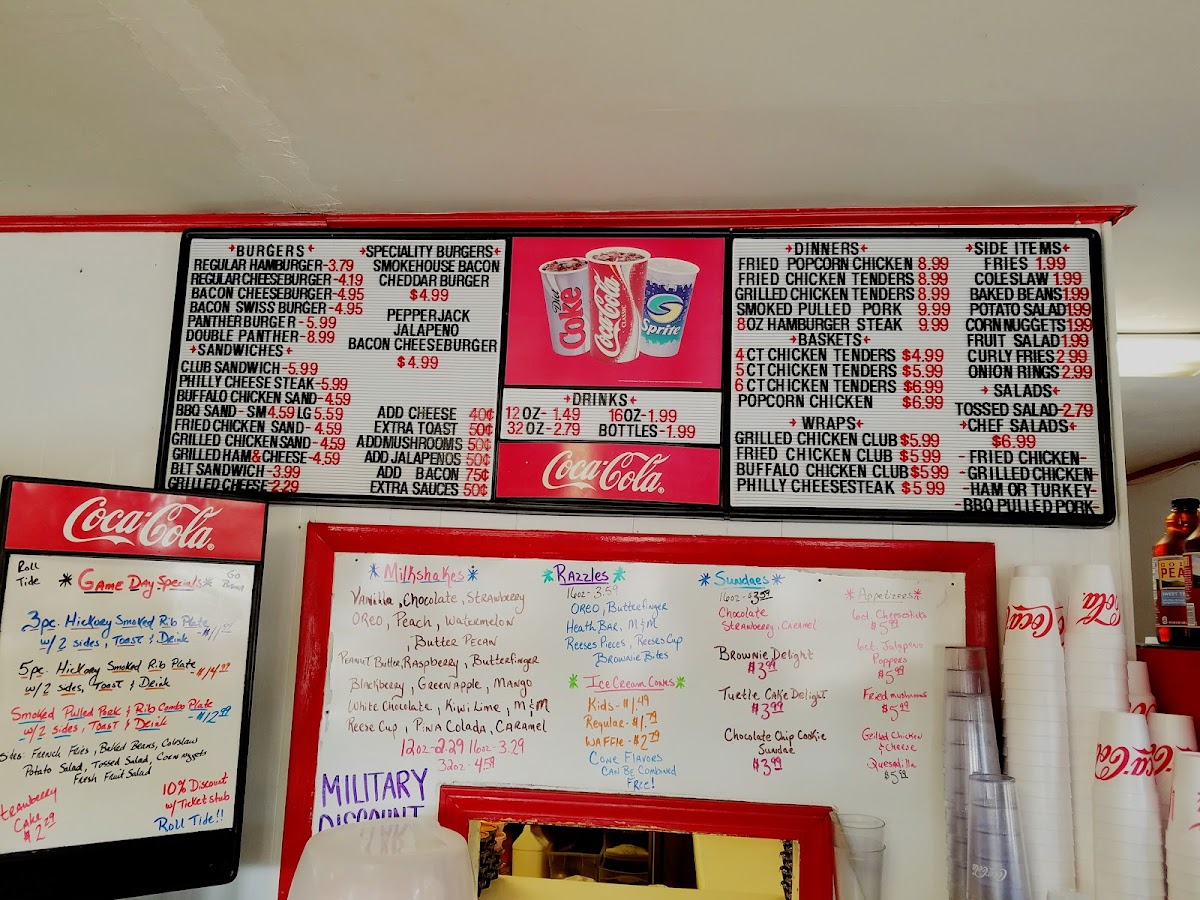 BURGERS
REGULAR HAMBURGER-3.79
REGULAR CHEESEBURGER-4.19
BACON CHEESEBURGER-4.95
BACON SWISS BURGER-4.95
PANTHER BURGER-5.99
DOUBLE PANTHER-8.99
SANDWICHES
CLUB SANDWICH-5.99
PHILLY CHEESE STEAK-5.99
BUFFALO CHICKEN SAND-4.59
BBQ SAND-SM 4.59 LG 5.59
FRIED CHICKEN SAND-4.59
GRILLED CHICKEN SAND-4.59
GRILLED HAM & CHEESE-4.59
BLT SANDWICH-3.99
GRILLED CHEESE-2.29
SPECIALITY BURGERS
SMOKEHOUSE BACON
CHEDDAR BURGER
$4.99
PEPPERJACK
JALAPENO
BACON CHEESEBURGER
$4.99
ADD CHEESE 40¢
EXTRA TOAST 50¢
ADD MUSHROOMS 50¢
ADD JALAPENOS 50¢
ADD BACON 75¢
EXTRA SAUCES 50¢
Diet Coke
Coca-Cola
CLASSIC
Sprite
DRINKS
12 OZ- 1.49 16 OZ-1.99
32 OZ-2.79 BOTTLES-1.99
Coca-Cola
DINNERS
FRIED POPCORN CHICKEN 8.99
FRIED CHICKEN TENDERS 8.99
GRILLED CHICKEN TENDERS 8.99
SMOKED PULLED PORK 9.99
8 OZ HAMBURGER STEAK 9.99
BASKETS
4 CT CHICKEN TENDERS $4.99
5 CT CHICKEN TENDERS $5.99
6 CT CHICKEN TENDERS $6.99
POPCORN CHICKEN $6.99
WRAPS
GRILLED CHICKEN CLUB $5.99
FRIED CHICKEN CLUB $5.99
BUFFALO CHICKEN CLUB $5.99
PHILLY CHEESESTEAK $5.99
SIDE ITEMS
FRIES 1.99
COLESLAW 1.99
BAKED BEANS 1.99
POTATO SALAD 1.99
CORN NUGGETS 1.99
FRUIT SALAD 1.99
CURLY FRIES 2.99
ONION RINGS 2.99
SALADS
TOSSED SALAD-2.79
CHEF SALADS
$6.99
-FRIED CHICKEN-
-GRILLED CHICKEN-
-HAM OR TURKEY-
-BBQ PULLED PORK-
Coca-Cola
Roll Tide
Game Day Specials
Go
3pc. Hickory Smoked Rib Plate
w/ 2 sides, Toast & Drink -$11.99
5pc. Hickory Smoked Rib Plate
w/ 2 sides, Toast & Drink -$14.99
Smoked Pulled Pork & Rib Combo Plate
w/ 2 sides, Toast & Drink -$12.99
Sides: French Fries, Baked Beans, Coleslaw
Potato Salad, Tossed Salad, Corn nuggets
Fresh Fruit Salad
Strawberry
Cake
$2.29
10% Discount
w/ Ticket stub
Roll Tide!!
Milkshakes
Vanilla, Chocolate, Strawberry
Oreo, Peach, Watermelon
Butter Pecan
Peanut Butter, Raspberry, Butterfinger
Blackberry, Green apple, Mango
White Chocolate, Kiwi Lime, M&M
Reese Cup, Pina Colada, Caramel
12oz-2.29 16oz-3.29
32oz-4.59
MILITARY
DISCOUNT
Razzles
16oz-3.59
Oreo, Butterfinger
Heath Bar, M&M
Reeses Pieces, Reeses Cup
Brownie Bites
Ice Cream Cones
Kids-$1.49
Regular-$1.79
Waffle-$2.79
Cone Flavors
Can Be Combined
Free!
Sundaes
16oz-$3.59
Chocolate
Strawberry, Caramel
Brownie Delight
$3.99
Turtle Cake Delight
$3.99
Chocolate Chip Cookie
Sundae
$3.99
Appetizers
6ct. Cheesesticks
$5.99
6ct. Jalapeno
Poppers
$5.99
Fried mushrooms
$5.99
Grilled Chicken
& Cheese
Quesadilla
$5.99
PEA
Coca-Cola
Coca-Cola
Coca-Cola